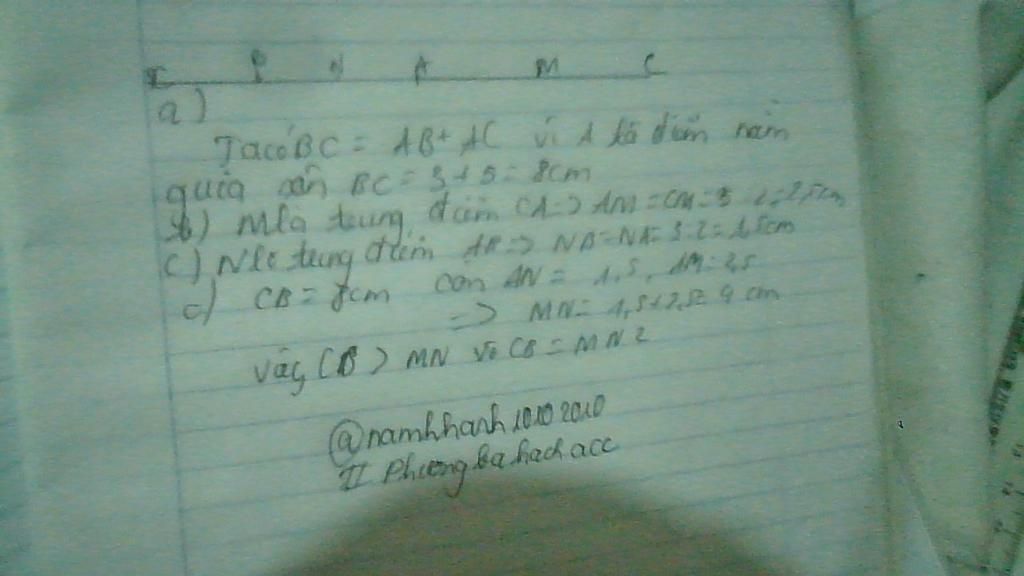 I P N A M C
a)
Ta có BC = AB + AC vì A là điểm nằm
giữa nên BC = 3 + 5 = 8cm
b) M là trung điểm CA => AM = CM = 5 : 2 = 2,5cm
c) N là trung điểm AB => NB = NA = 3 : 2 = 1,5cm
c) CB = 8cm còn AN = 1,5, AM = 2,5
=> MN = 1,5 + 2,5 = 4 cm
vậy CB > MN vì CB = MN 2
@namhhanh10102010
II Phuongbahachacc